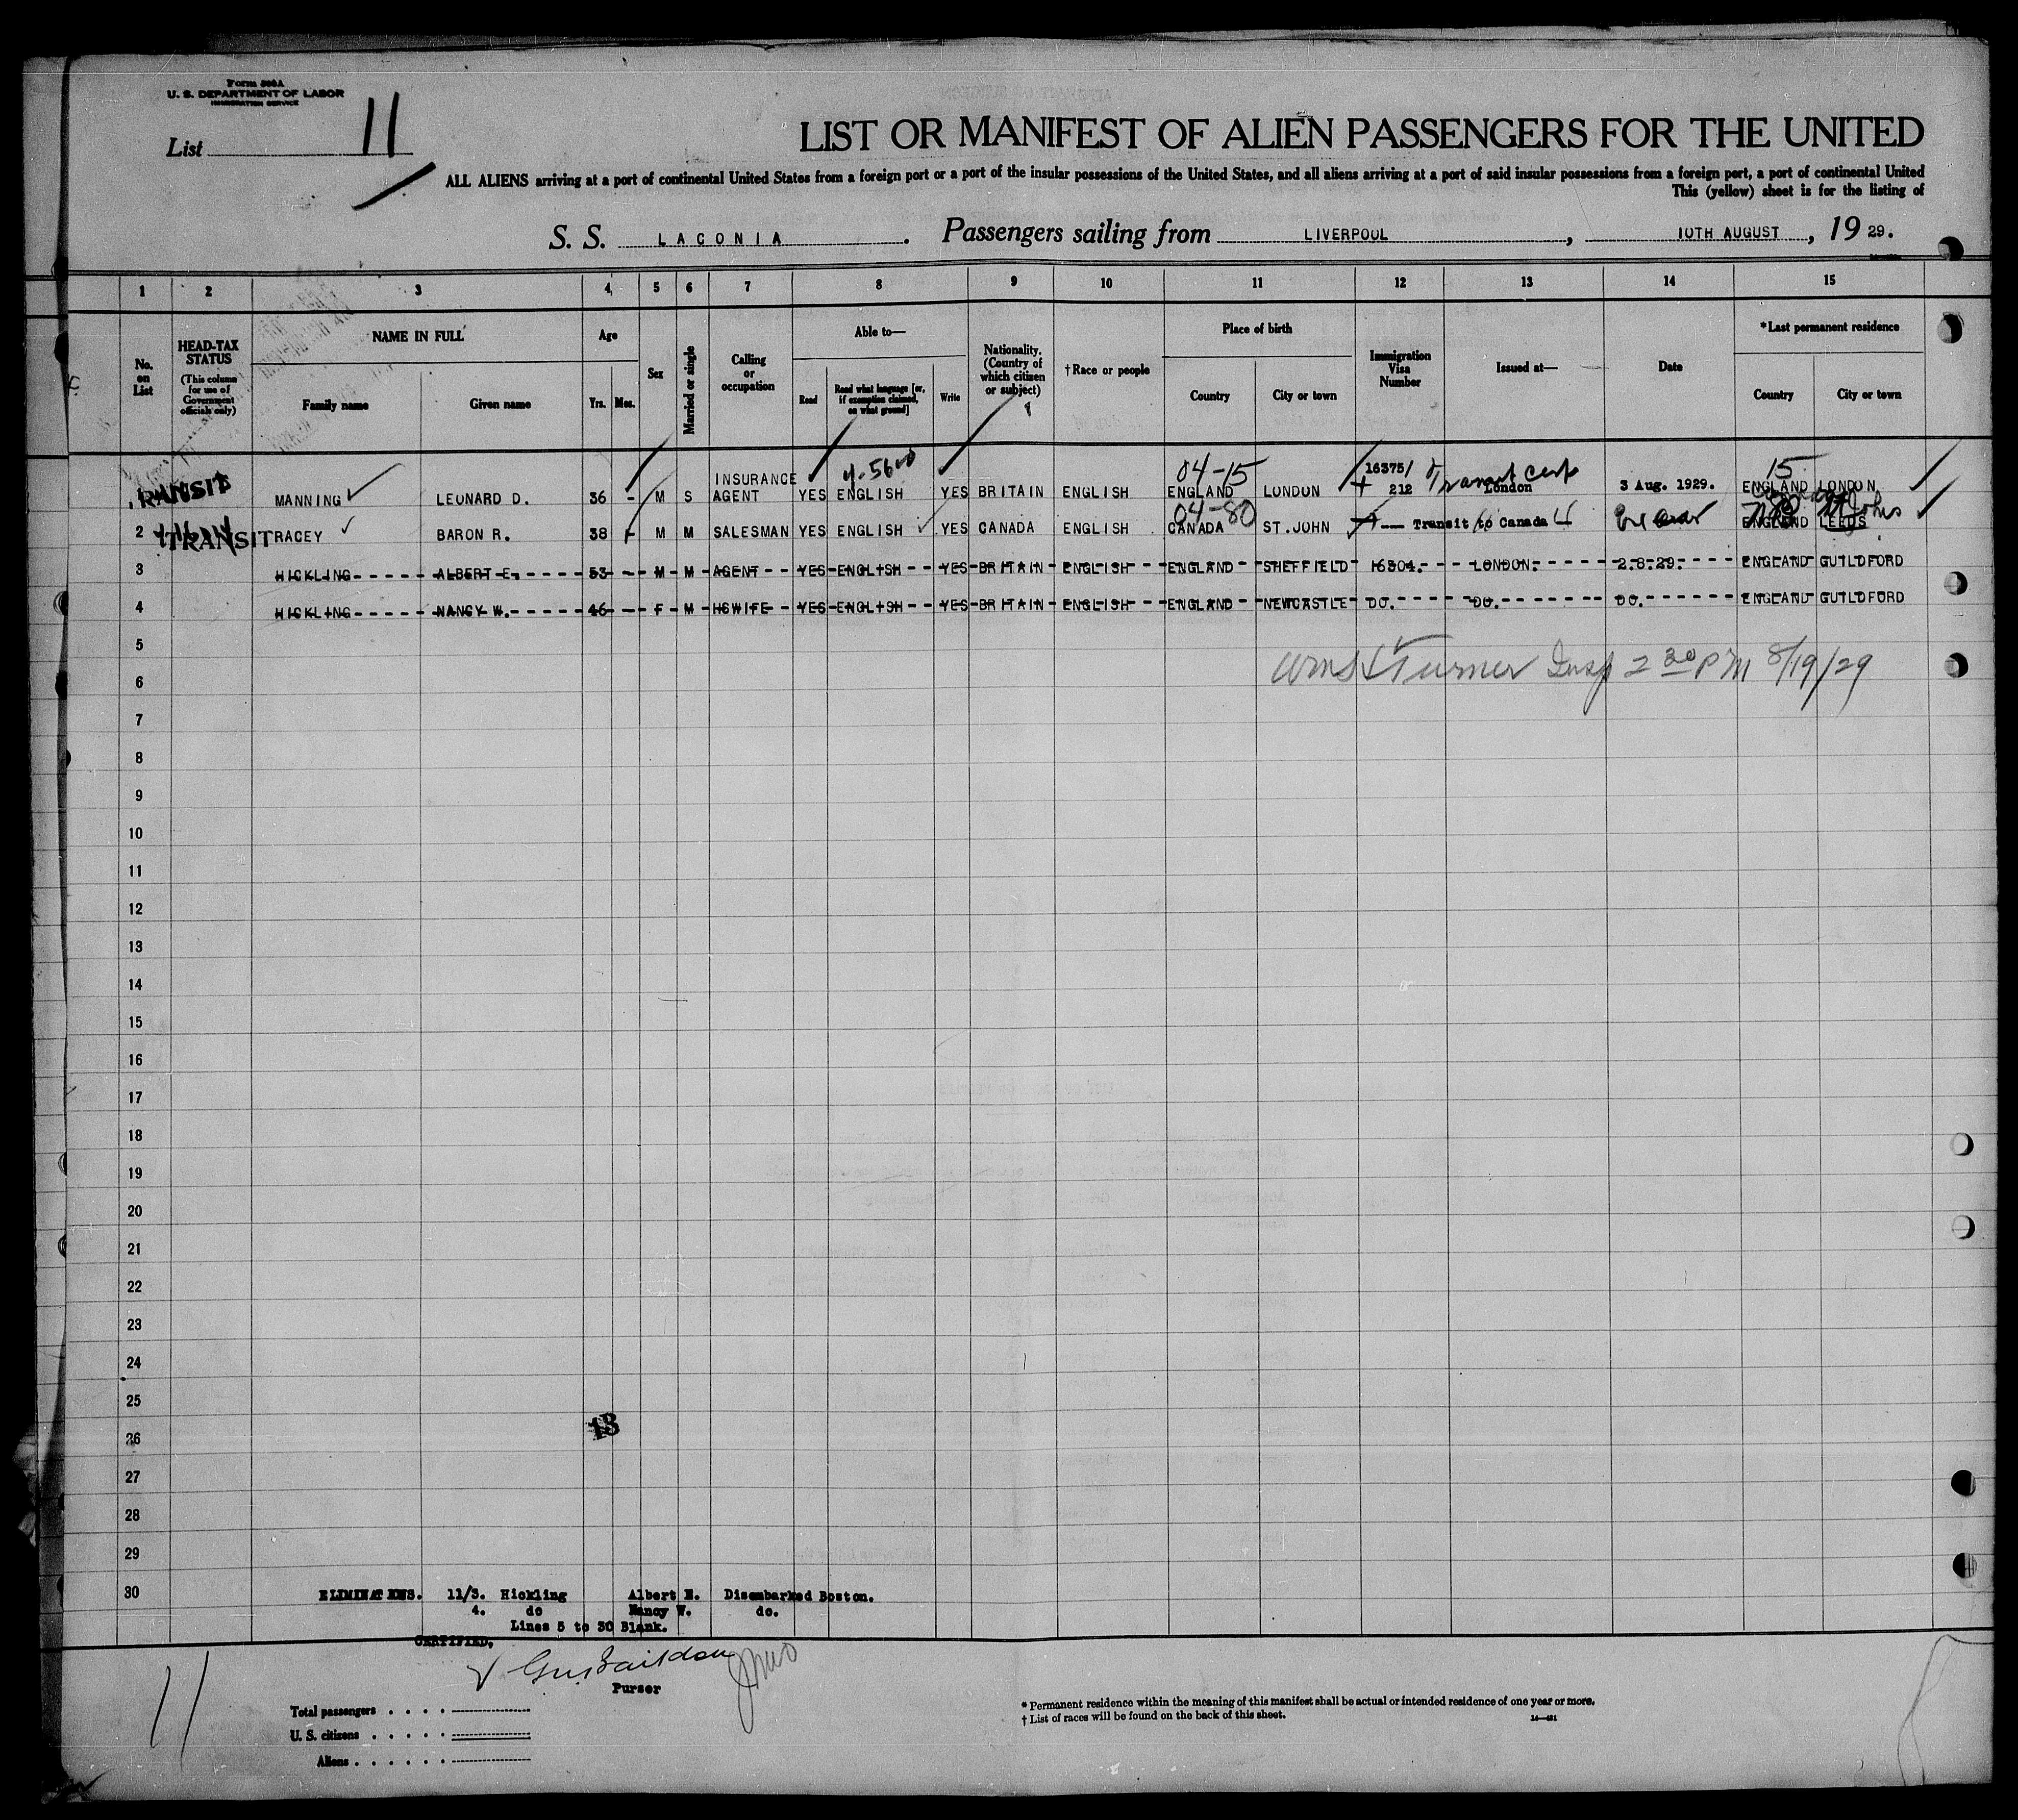 Form 500A
U. S. DEPARTMENT OF LABOR
IMMIGRATION SERVICE
List 11
LIST OR MANIFEST OF ALIEN PASSENGERS FOR THE UNITED
ALL ALIENS arriving at a port of continental United States from a foreign port or a port of the insular possessions of the United States, and all aliens arriving at a port of said insular possessions from a foreign port, a port of continental United
This (yellow) sheet is for the listing of
S. S. LACONIA. Passengers sailing from LIVERPOOL, 10TH AUGUST, 19 29.
1 2 3 4 5 6 7 8 9 10 11 12 13 14 15
No. on List
HEAD-TAX STATUS
(This column for use of Government officials only)
NAME IN FULL
Family name Given name
Age
Yrs. Mos.
Sex
Married or single
Calling or occupation
Able to—
Read
Read what language [or, if exemption claimed, on what ground]
Write
Nationality. (Country of which citizen or subject)
†Race or people
Place of birth
Country City or town
Immigration Visa Number
Issued at—
Date
*Last permanent residence
Country City or town
TRANSIT MANNING LEONARD D. 36 - M S INSURANCE AGENT YES ENGLISH YES BRITAIN ENGLISH 04-15 ENGLAND LONDON 16375/ 212 Transit Cert London 3 Aug. 1929. 15 ENGLAND LONDON
2 TRANSIT RACEY BARON R. 38 M M SALESMAN YES ENGLISH YES CANADA ENGLISH 04-80 CANADA ST.JOHN — Transit to Canada ENGLAND LEEDS St Johns
3 HICKLING ALBERT E. 53 - M M AGENT YES ENGLISH YES BRITAIN ENGLISH ENGLAND SHEFFIELD 16304. LONDON. 2.8.29. ENGLAND GUILDFORD
4 HICKLING NANCY W. 46 - F M HSWIFE YES ENGLISH YES BRITAIN ENGLISH ENGLAND NEWCASTLE DO. DO. DO. ENGLAND GUILDFORD
5
Turner Insp 2 30 PM 8/19/29
6
7
8
9
10
11
12
13
14
15
16
17
18
19
20
21
22
23
24
25
13
26
27
28
29
30 ELIMINATIONS. 11/3. Hickling Albert E. Disembarked Boston.
4. do Nancy W. do.
Lines 5 to 30 Blank.
CERTIFIED,
Purser
11
Total passengers
U. S. citizens
Aliens
* Permanent residence within the meaning of this manifest shall be actual or intended residence of one year or more.
† List of races will be found on the back of this sheet.